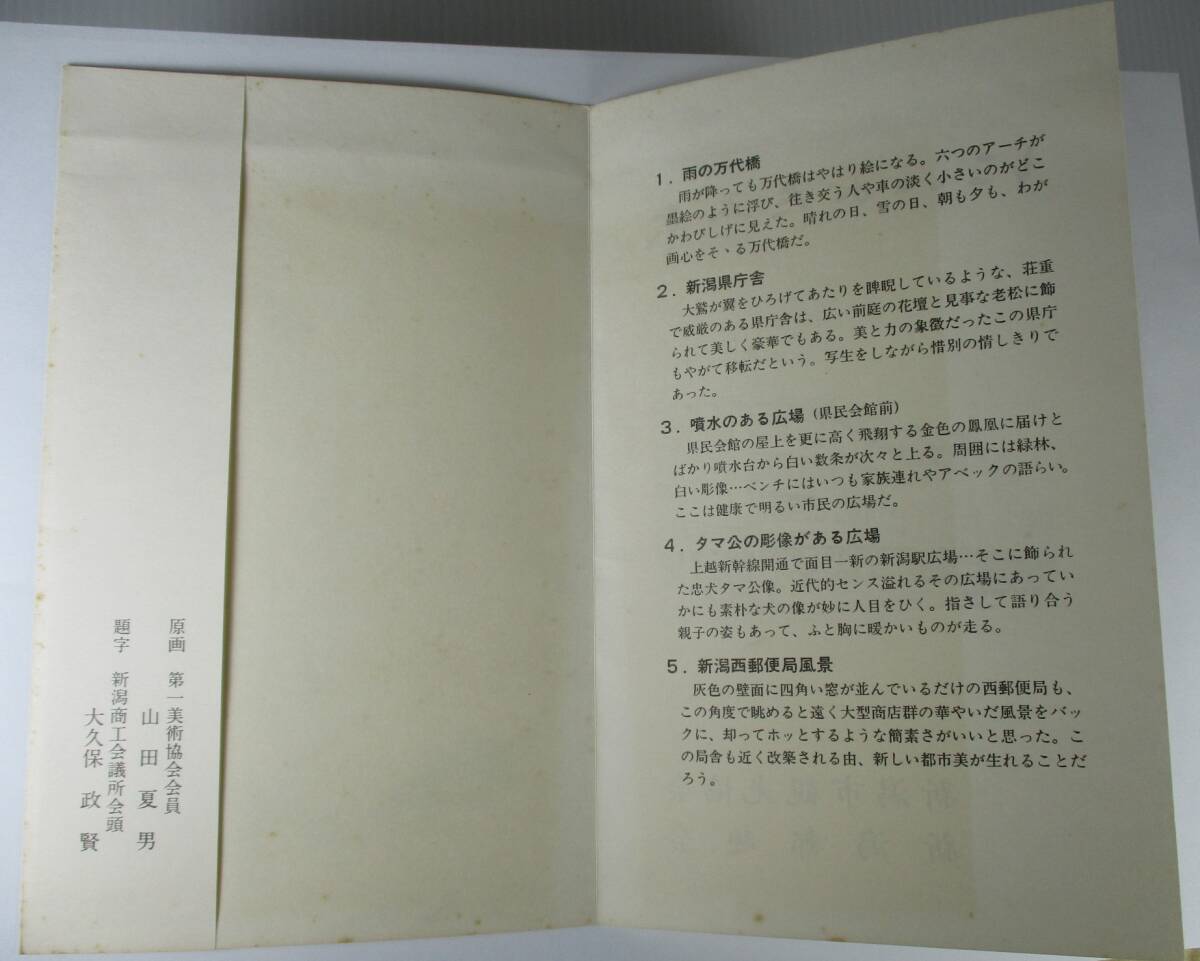 1. 雨の万代橋
雨が降っても万代橋はやはり絵になる。六つのアーチが
墨絵のように浮び、往き交う人や車の淡く小さいのがどこ
かわびしげに見えた。晴れの日、雪の日、朝も夕も、わが
画心をそゝる万代橋だ。
2. 新潟県庁舎
大鷲が翼をひろげてあたりを睥睨しているような、荘重
で威厳のある県庁舎は、広い前庭の花壇と見事な老松に飾
られて美しく豪華でもある。美と力の象徴だったこの県庁
もやがて移転だという。写生をしながら惜別の情しきりで
あった。
3. 噴水のある広場(県民会館前)
県民会館の屋上を更に高く飛翔する金色の鳳凰に届けと
ばかり噴水台から白い数条が次々と上る。周囲には緑林、
白い彫像…ベンチにはいつも家族連れやアベックの語らい。
ここは健康で明るい市民の広場だ。
4. タマ公の彫像がある広場
上越新幹線開通で面目一新の新潟駅広場…そこに飾られ
た忠犬タマ公像。近代的センス溢れるその広場にあってい
かにも素朴な犬の像が妙に人目をひく。指さして語り合う
親子の姿もあって、ふと胸に暖かいものが走る。
5. 新潟西郵便局風景
灰色の壁面に四角い窓が並んでいるだけの西郵便局も、
この角度で眺めると遠く大型商店群の華やいだ風景をバッ
クに、却ってホッとするような簡素さがいいと思った。こ
の局舎も近く改築される由、新しい都市美が生れることだ
ろう。
原画 第一美術協会会員
山田夏男
題字 新潟商工会議所会頭
大久保政賢